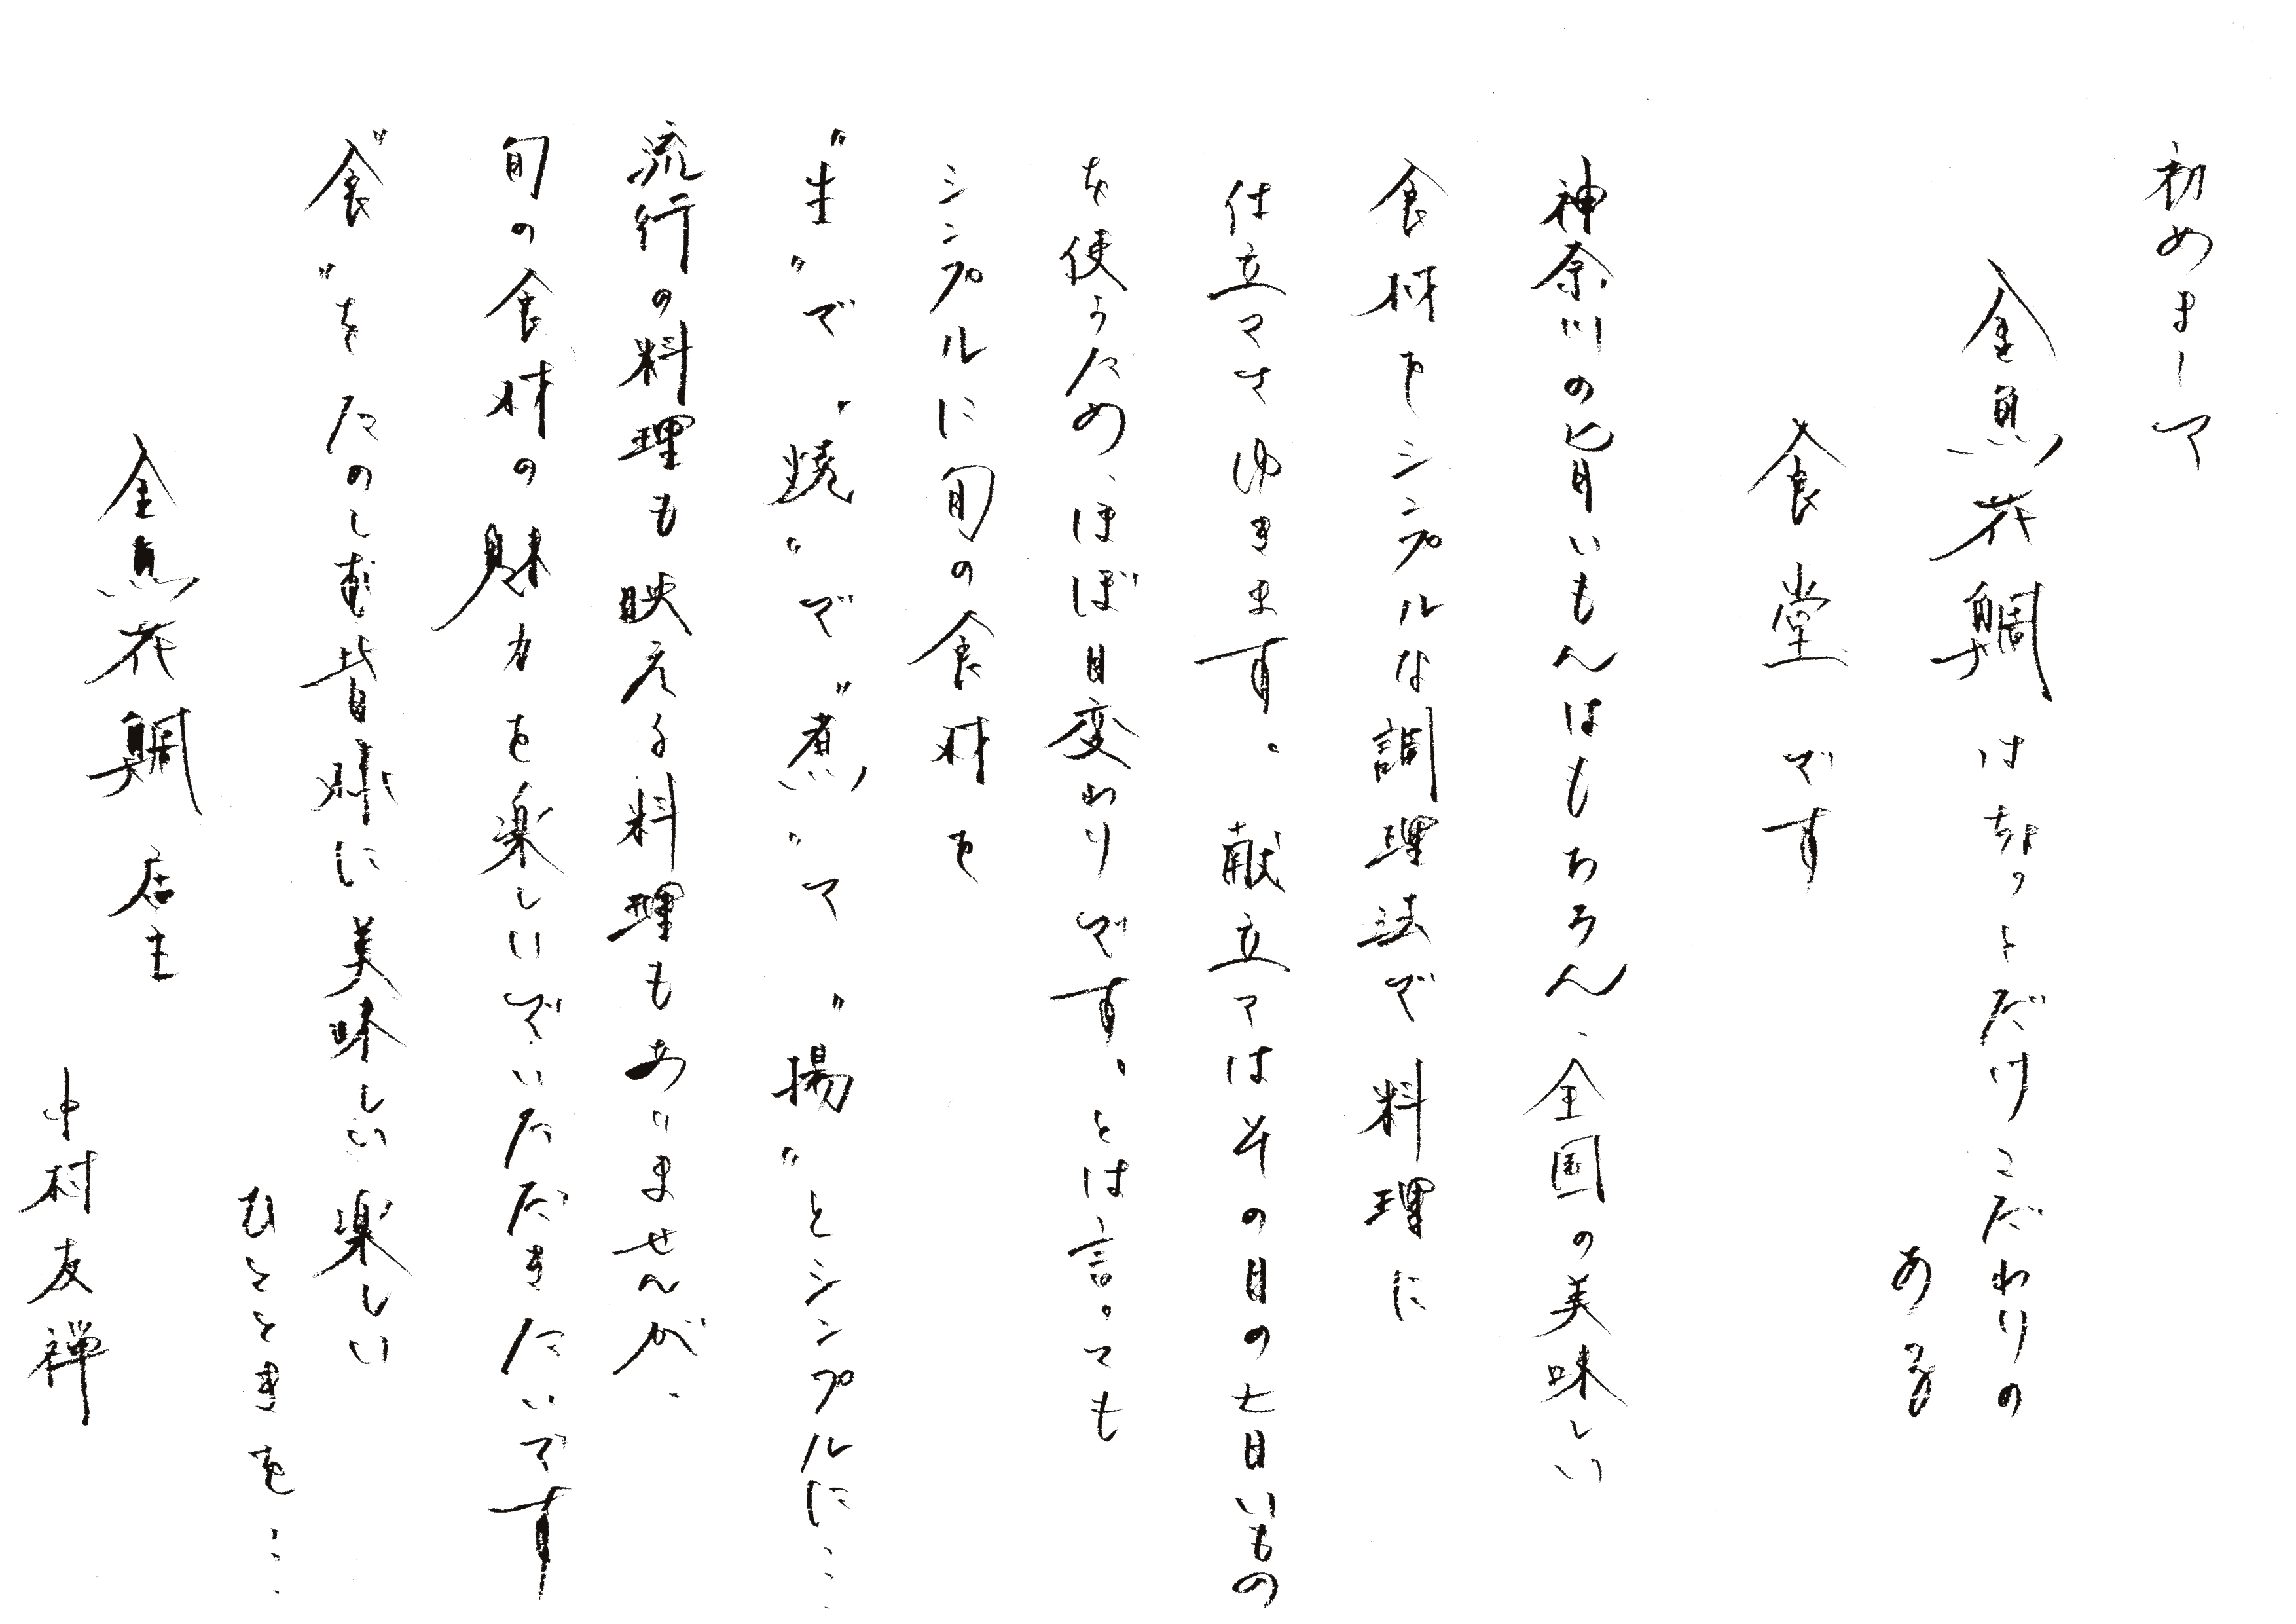 初めまして
金魚花鯛はちょっとだけこだわりの
ある
食堂です
神奈川の旨いもんはもちろん、全国の美味しい
食材をシンプルな調理法で料理に
仕立てさゆきます。献立てはその日の旨いもの
を使うため、ほぼ日変わりです。とは言っても
シンプルに旬の食材を
"生"で"焼"で"煮"て"揚"とシンプルに・・・
流行の料理も映える料理もありませんが、
旬の食材の魅力を楽しいでいただきたいです
"食"をたのしむ皆様に美味しい楽しい
ひとときを・・・
金魚花鯛 店主
中村友禅